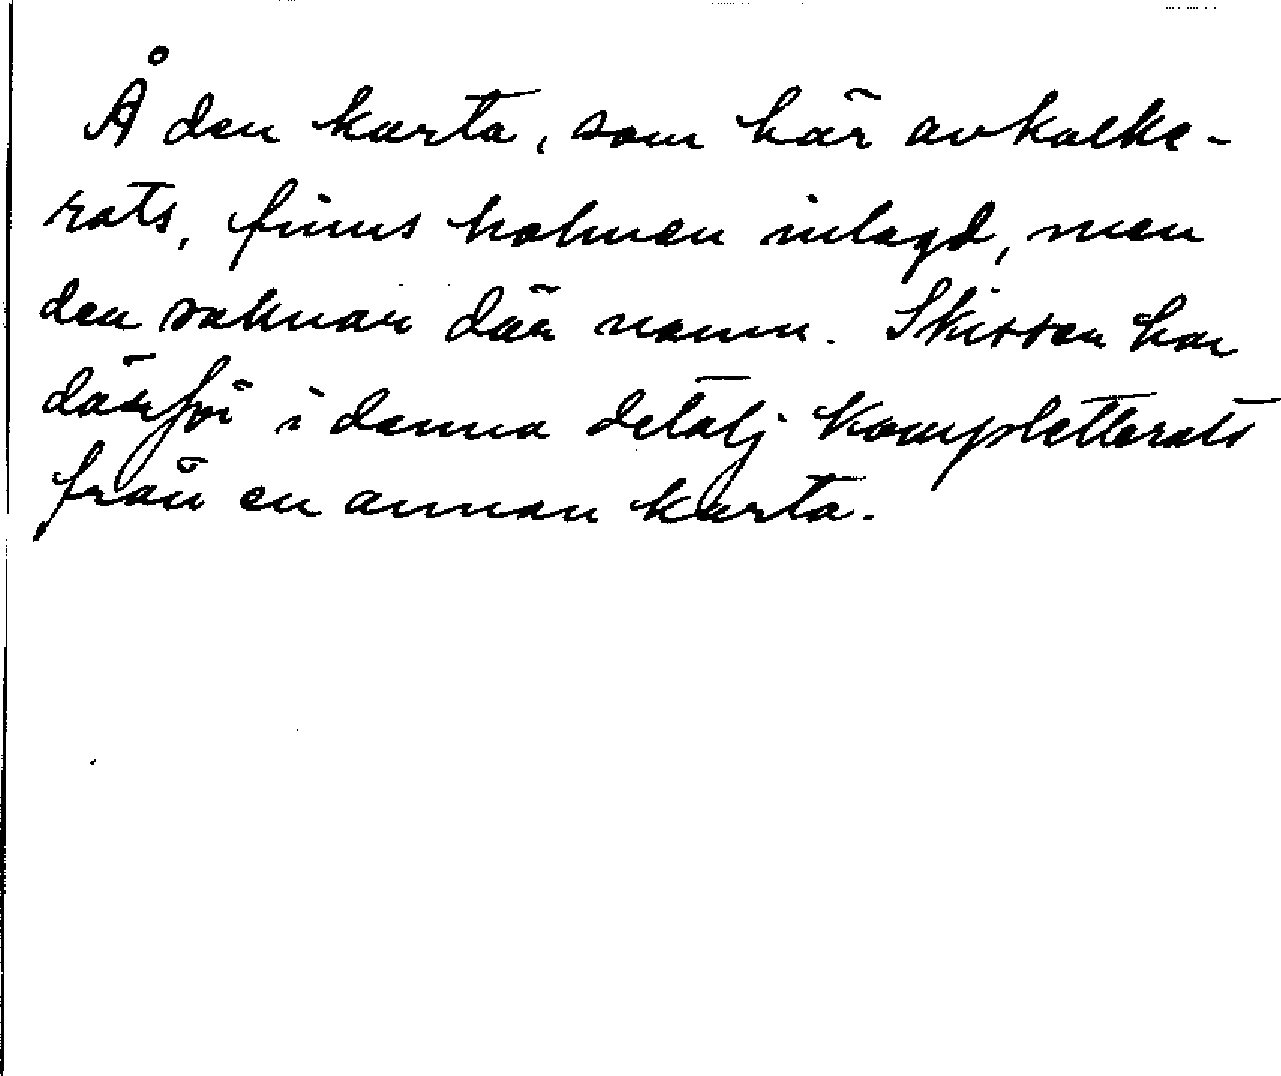 Å den karta, som här avkalke-
rats, finns holmen inlagd, men
den saknar där namn. Skissen har
därför i denna detalj kompletterats
från en annan karta.